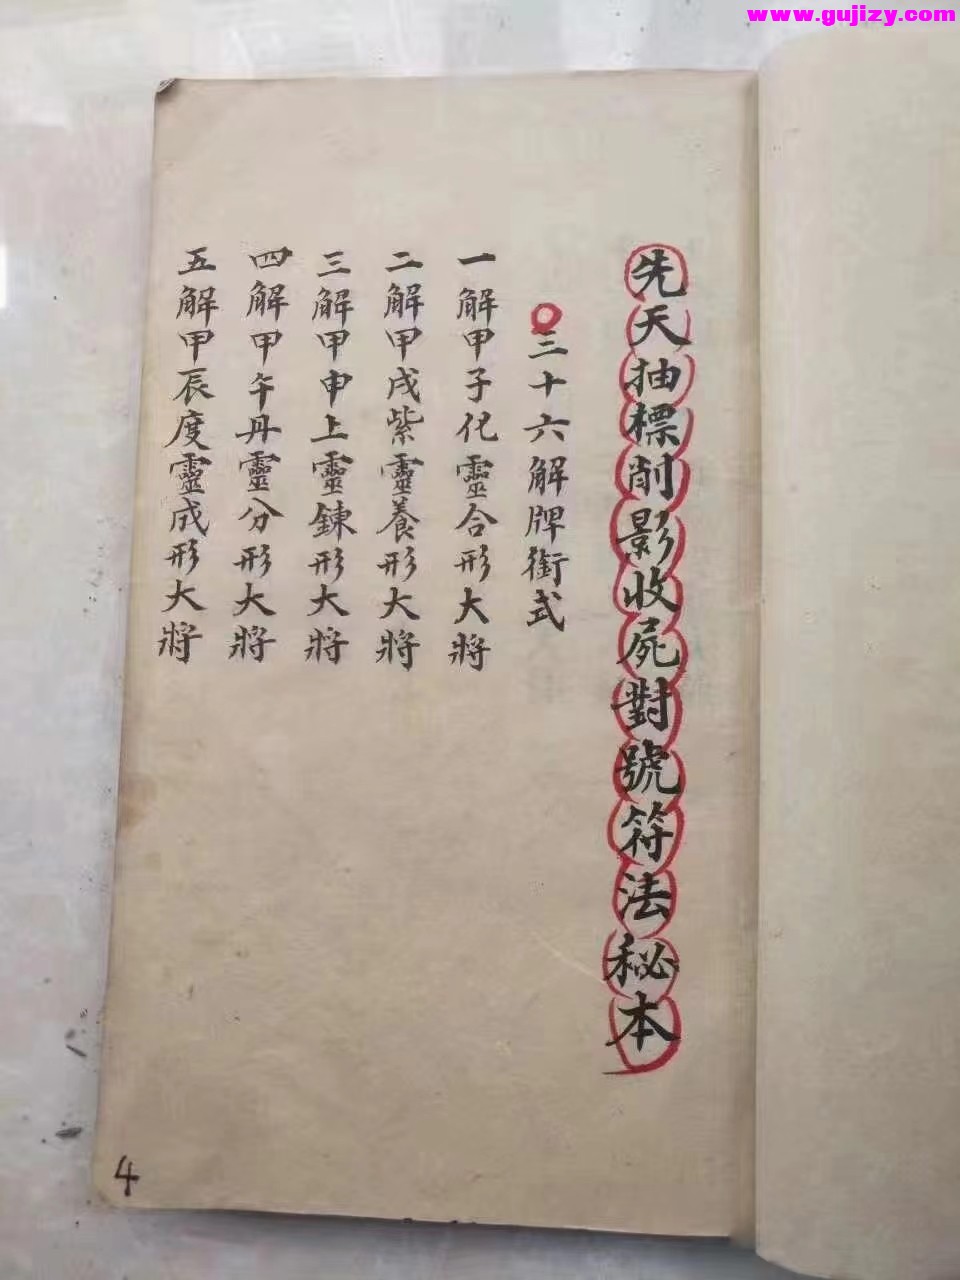 www.gujizy.com
先天抽標削影收屍對號符法秘本
三十六解牌銜式
一解甲子化靈合形大將
二解甲戌紫靈養形大將
三解甲申上靈鍊形大將
四解甲午丹靈分形大將
五解甲辰度靈成形大將
4